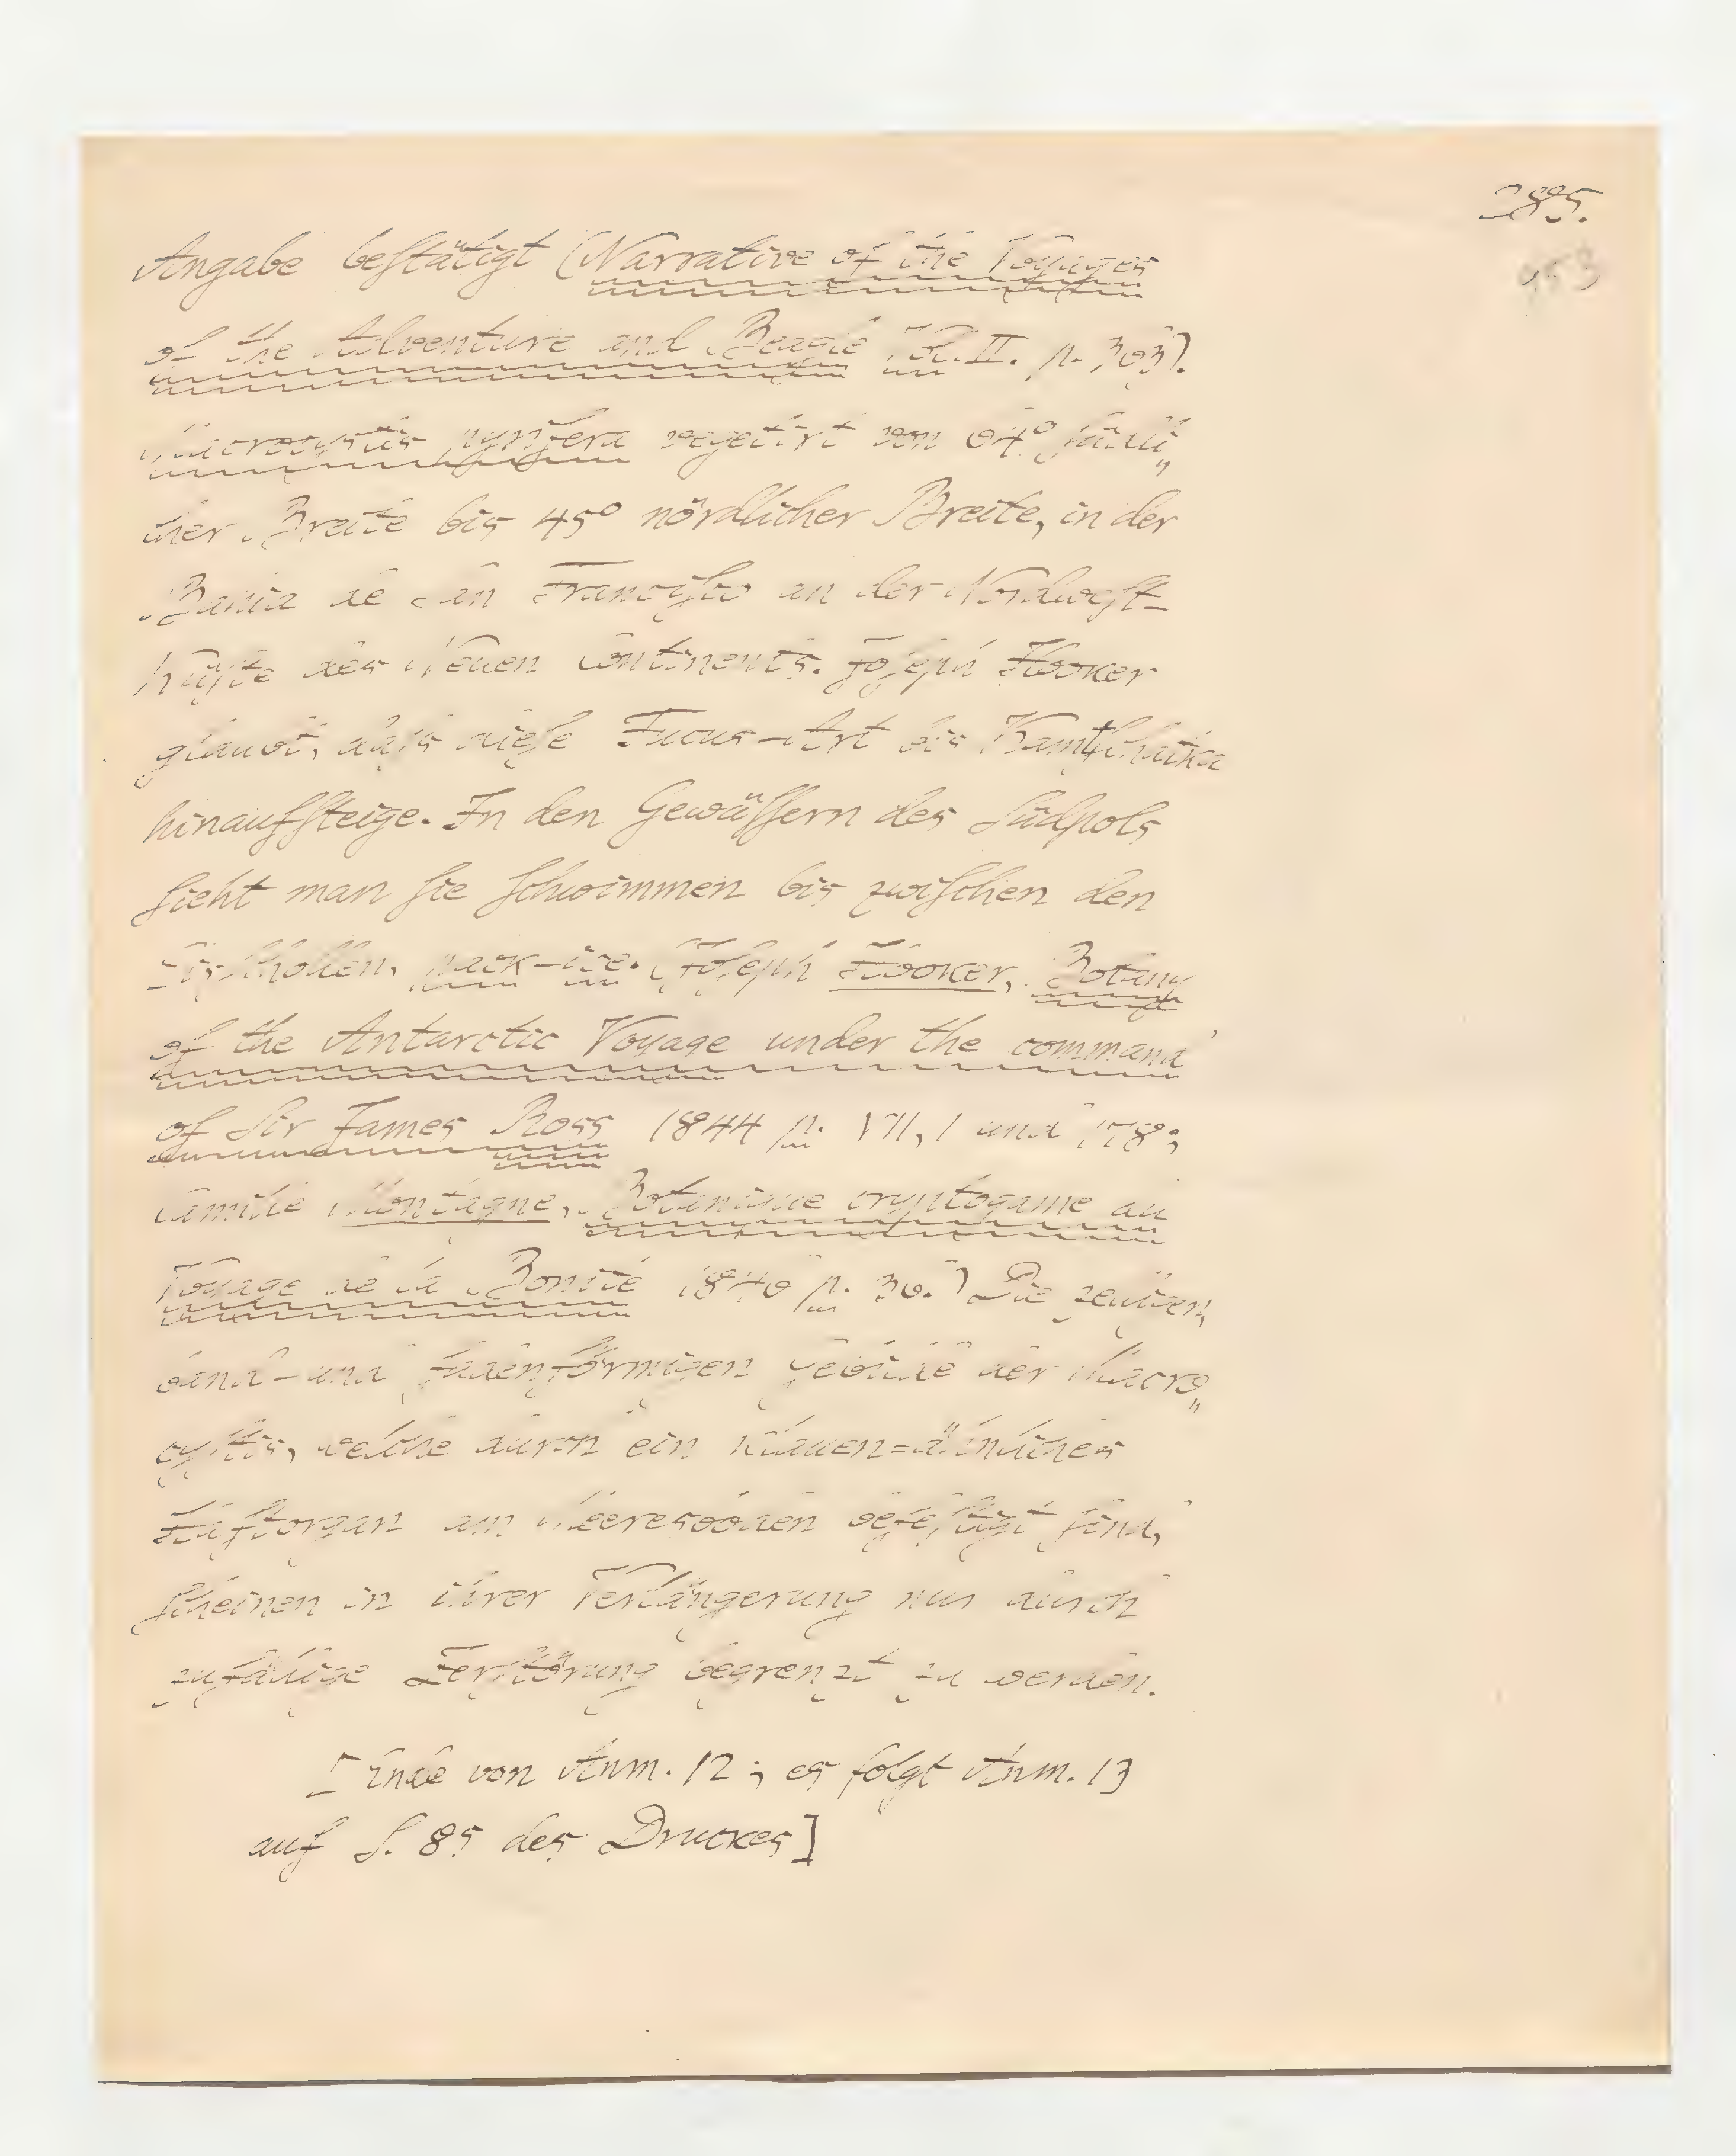 285.
953
Angabe beſtätigt (Narrative of the Voyages
of the Adventure and Beagle Vol. II. p. 363).
Macrocystis pyrifera vegetirt von 64° ſüdli„
cher Breite bis 45° nördlicher Breite, in der
Bahia de San Franciſco an der Nordweſt-
küſte des Neuen Continents. Joſeph Hooker
glaubt, daſs dieſe Fucus-Art bis Kamtſchatka
hinaufſteige. In den Gewäſſern des Südpols
ſieht man ſie ſchwimmen bis zwiſchen den
Eisſchollen, pack-ice. (Joſeph Hooker, Botany
of the Antarctic Voyage under the command
of Sir James Ross 1844 p. VII, 1 und 178;
Camille Montagne, Botanique cryptogame du
Voyage de la Bonite 1846 p. 36.) Die zelligen,
band- und fadenförmigen Gebilde der Macro„
cyſtis, welche durch ein klauen=ähnliches
Haftorgan am Meeresboden befeſtigt ſind,
ſcheinen in ihrer Verlängerung nur durch
zufällige Zerſtörung begrenzt zu werden.
[Ende von Anm. 12; es folgt Anm. 13
auf S. 85 des Druckes]